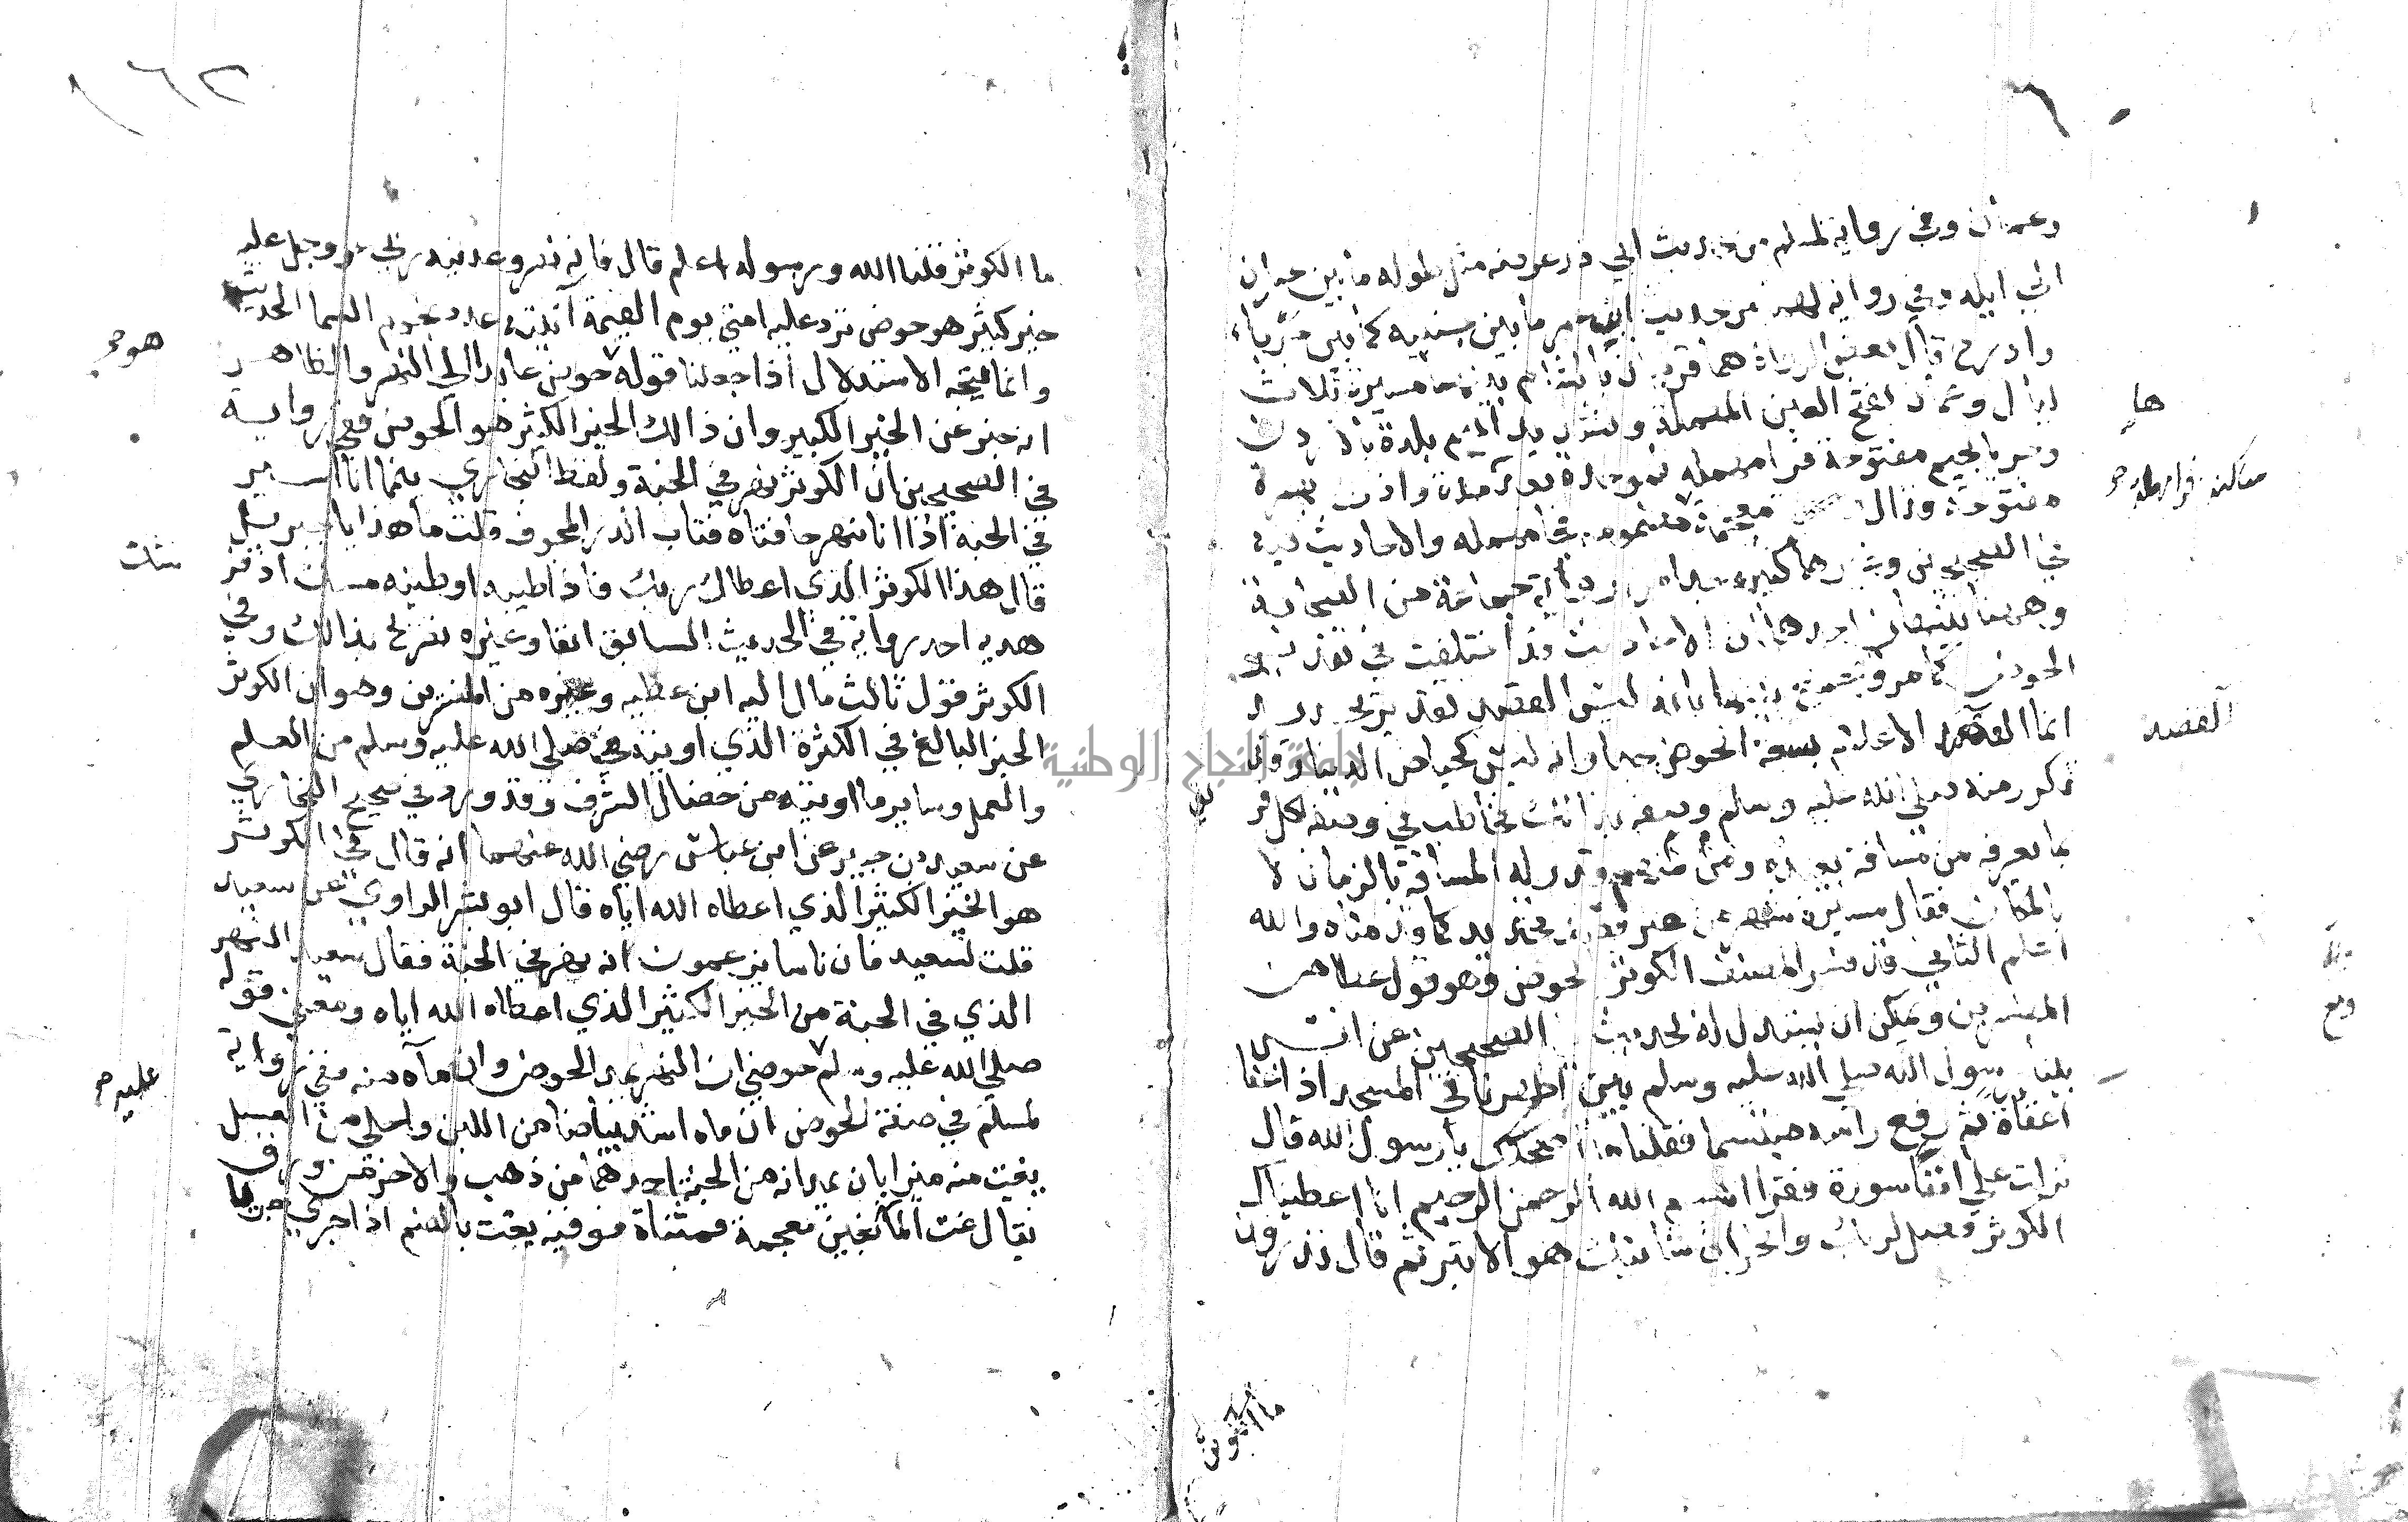 وعمان وفي رواية لمسلم من حديث ابي ذر عرضه مثل طوله ما بين عمان
الي ايله وفي رواية لهما من حديث ابن عمر ما بين جنبيه كما بين جرباء
واذرح قال بعض الرواة هما قريتان بالشام بينهما مسيرة ثلاث
ليال وعمان بفتح العين المهملة وتشديد الميم بلدة بالاردن
وجربا بجيم مفتوحة فرا مهمله فموحدة بعدها مدة واذرح بهمزة
مفتوحة وذال معجمة مضمومه فحا مهمله والاحاديث فيه
في الصحيحين وغيرهما كثيره من رواية جماعة من الصحابة
وههنا تنبيهان احدهما ان الاحاديث قد اختلفت في تقدير
الحوض كما مر ويجمع بينها بانه ليس القصد تقدير تحديد
انما القصد الاعلام بسعة الحوض جدا وانه ليس كحياض الدنيا وقد
تكرر منه صلي الله عليه وسلم وصفه بذلك فخاطب في وصفه لكل
بما يعرفه من مسافة بعيده ومنهم من قدر له المسافة بالزمان لا
بالمكان فقال مسيرة شهر من غير قصد تحديد كما قدمناه والله
اعلم الثاني قد فسر المصنف الكوثر بالحوض وهو قول عطا من
المفسرين ويمكن ان يستدل له لحديث الصحيحين عن انس
بينا رسول الله صلي الله عليه وسلم بين اظهرنا في المسجد اذ اغفا
اغفاة ثم رفع راسه متبسما فقلنا ما اضحكك يا رسول الله قال
نزلت علي انفا سورة فقرا بسم الله الرحمن الرحيم انا اعطيناك
الكوثر فصل لربك وانحر ان شانئك هو الابتر ثم قال اتدرون
ها
القصد
ما الكوثر
١٦٢
ما الكوثر قلنا الله ورسوله اعلم قال فانه نهر وعدنيه ربي عز وجل عليه
خير كثير هو حوض ترد عليه امتي يوم القيمة آنيته عدد نجوم السما الحديث
وانما يتجه الاستدلال اذا جعلنا قوله هو حوض عايدا الي النهر والظاهر
انه خبر عن الخير الكثير وان ذالك الخير الكثير هو الحوض ففي رواية
في الصحيحين ان الكوثر نهر في الجنة ولفظ البخاري بينما انا اسير
في الجنة اذا انا بنهر حافتاه قباب الدر المجوف قلت ما هذا يا جبريل
قال هذا الكوثر الذي اعطاك ربك فاذا طيبه او طينه مسك اذفر شك
هدبه احد رواته في الحديث السابق انفا وغيره تصريح بذالك وفي
الكوثر قول ثالث مال اليه ابن عطيه وغيره من المفسرين وهو ان الكوثر
الخير البالغ في الكثرة الذي اوتيه صلي الله عليه وسلم من العلم
والعمل وساير ما اوتيه من خصال الشرف وقد ورد في صحيح البخاري
عن سعيد بن جبير عن ابن عباس رضي الله عنهما انه قال في الكوثر
هو الخير الكثير الذي اعطاه الله اياه قال ابو بشر الراوي عن سعيد
قلت لسعيد فان ناسا يزعمون انه نهر في الجنة فقال سعيد النهر
الذي في الجنة من الخير الكثير الذي اعطاه الله اياه ومعني قوله
صلي الله عليه وسلم حوضي ان النهر يمد الحوض وان ماه منه ففي رواية
لمسلم في صفة الحوض ان ماه اشد بياضا من اللبن واحلي من العسل
يغت منه ميزابان يمدانه من الجنة احدهما من ذهب والاخر من ورق
يقال غت الما بغين معجمة فمثناة فوقيه يغت بالضم اذا جري جريا
هو
شك
عليه
جامعة النجاح الوطنية